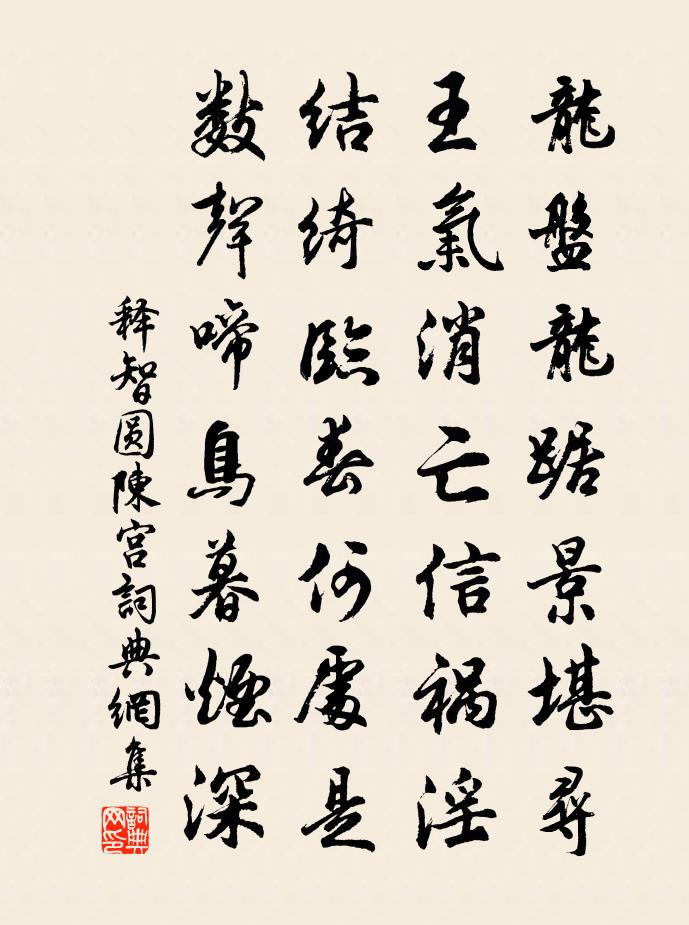 龍盤龍踞景堪尋
王氣消亡信禍淫
结綺臨春何處是
數聲啼鳥暮煙深
释智圆陳宫詞典網集
詞典網印